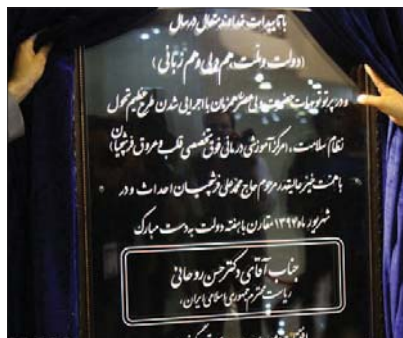 با تاییدات خداوند متعال در سال
(دولت و ملت، همدلی و همزبانی)
و در پرتو توجهات حضرت ولی عصر همزمان با اجرایی شدن طرح عظیم تحول
نظام سلامت، (مرکز آموزشی درمانی فوق تخصصی قلب و عروق فرشچیان)
با همت خیر عالیقدر مرحوم حاج محمد علی فرشچیان احداث و در
شهریور ماه ۱۳۹۴ مقارن با هفته دولت به دست مبارک
جناب آقای دکتر حسن روحانی
ریاست محترم جمهوری اسلامی ایران،